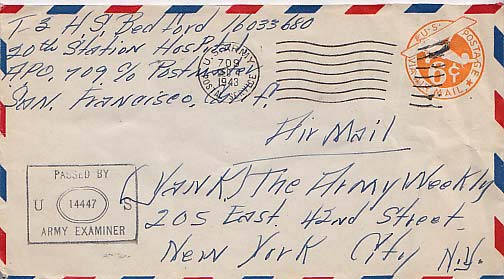 T3 H.S. Bedford 16033680
20th Station Hospital
APO, 709 c/o Postmaster
San. Francisco, Calif.
U.S. ARMY
709
1943
POSTAL SERVICE
U.S. POSTAGE
6c
VIA AIR MAIL
Air Mail
PASSED BY
U 14447 S
ARMY EXAMINER
(Yank) The Army Weekly
205 East. 42nd Street.
New York City N.Y.